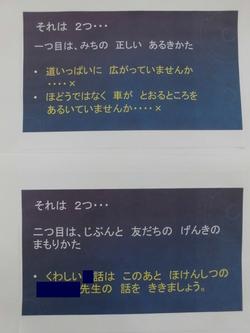 それは 2つ・・・
一つ目は、みちの 正しい あるきかた
• 道いっぱいに 広がっていませんか
・・・・×
• ほどうではなく 車が とおるところを
あるいていませんか・・・・×
それは 2つ・・・
二つ目は、じぶんと 友だちの げんきの
まもりかた
• くわしい 話は このあと ほけんしつの
先生の 話を ききましょう。